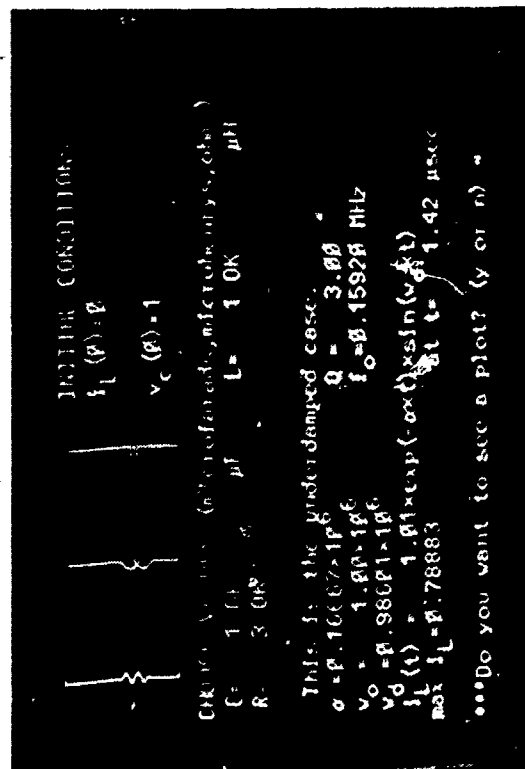 INITIAL CONDITIONS
i_L (0)=0
v_c (0)=1
(microfarads,microhenrys,ohms)
C= 1 OK µF L= 1 OK µH
R= 3 OK
This is the underdamped case.
α =0.16667×10^6 Q = 3.00
w_o = 1.00×10^6 f_o=0.15920 MHz
w_d =0.98601×10^6
i_L(t) = 1.01×exp(-α×t)×sin(w_d×t)
max i_L=0.78883 at t= 1.42 µsec
***Do you want to see a plot? (y or n) =